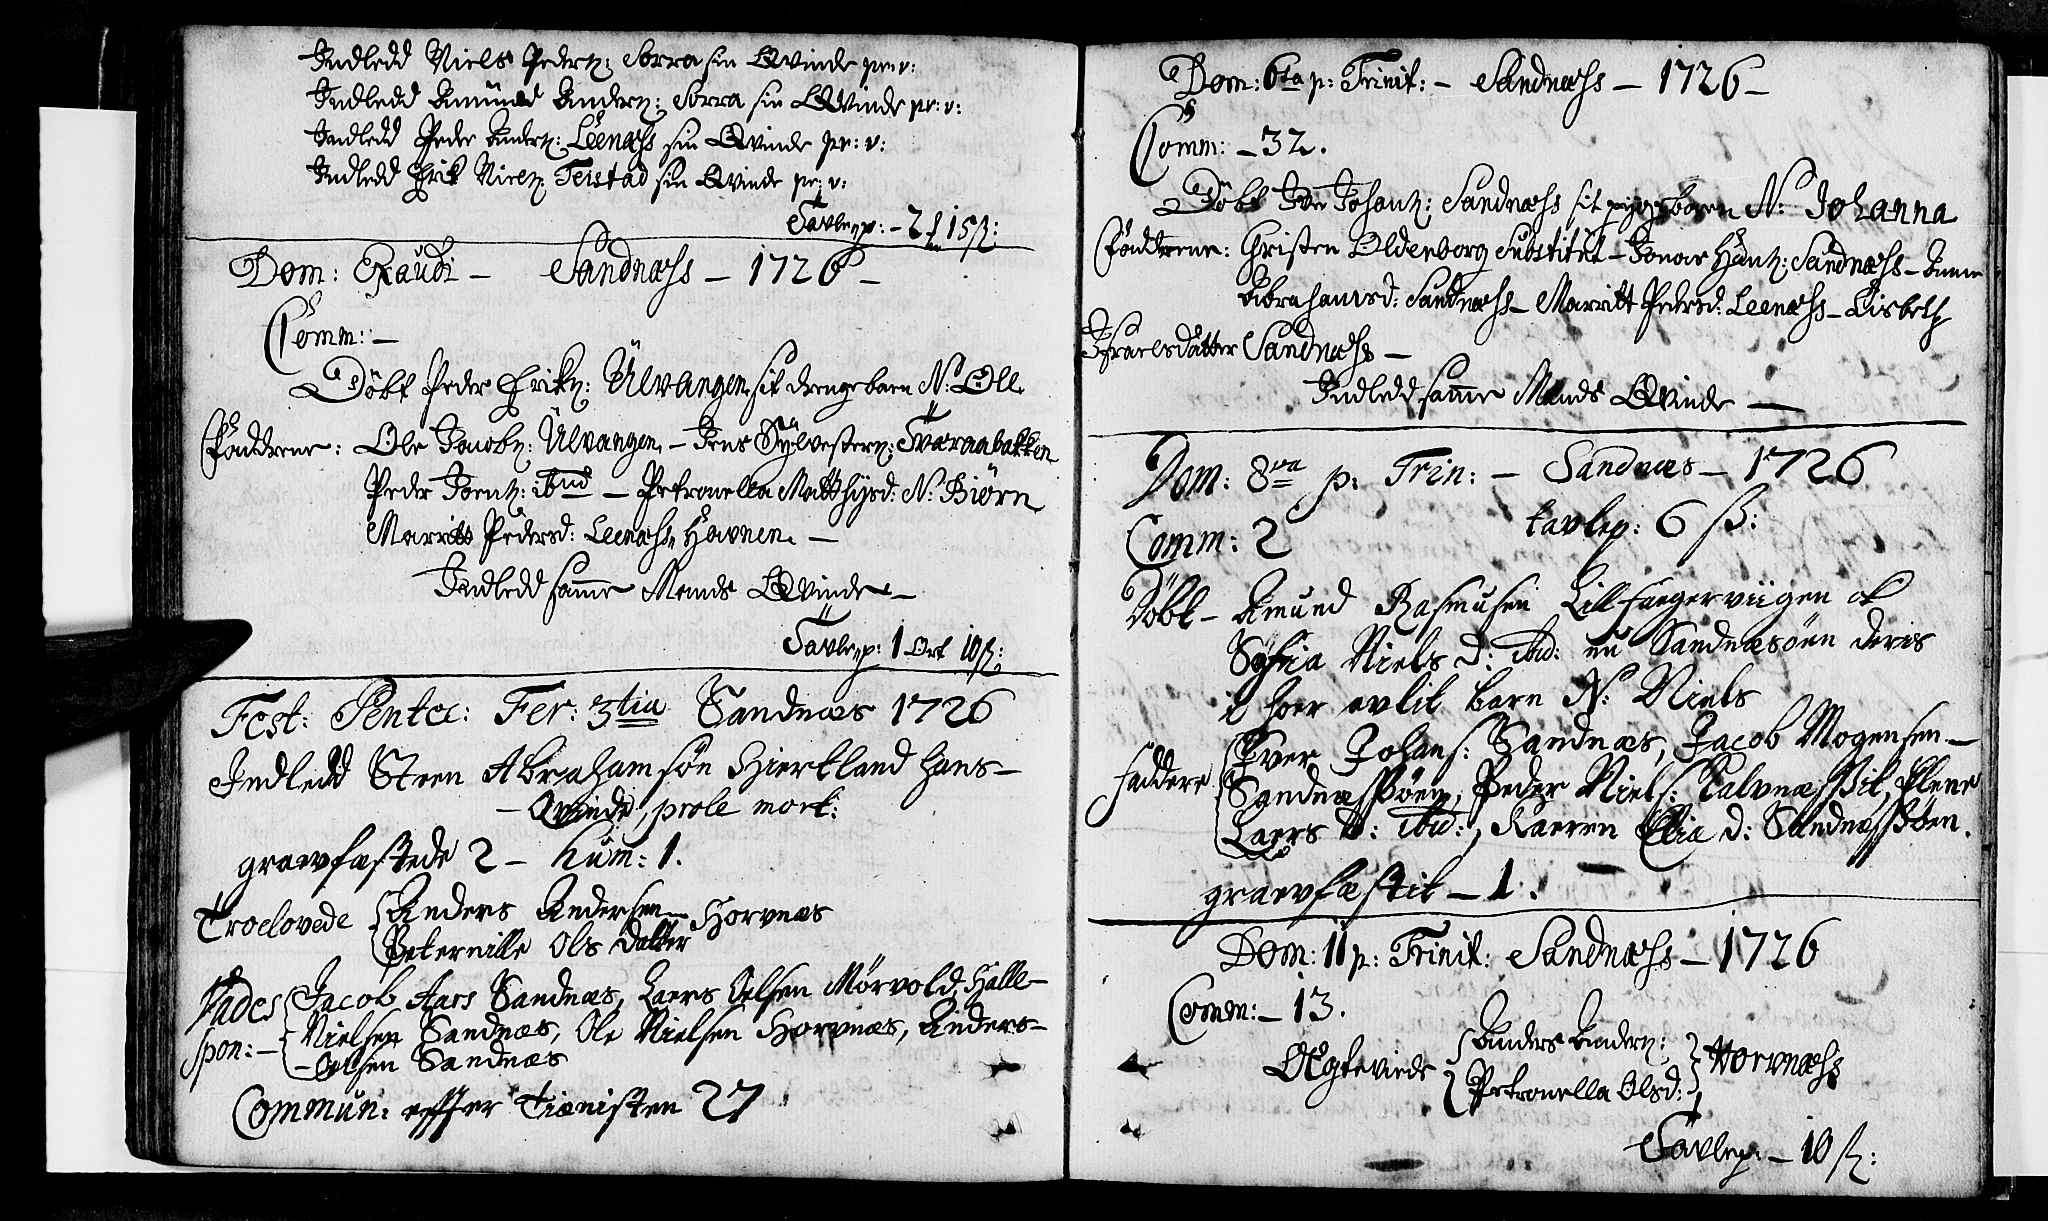 Indledd Niels Pederz: Sorra sin Qvinde pr: v:
Indledd Amund Anderz: Sorra sin Qvinde pr: v:
Indledd Peder Anderz: Leenæss sin Qvinde pr: v:
Indledd Erik Nielz: Teistad sin Qvinde pr: v:
Tavlep: - 2 15 ß:
Dom: Exaudi - Sandnæss - 1726 -
Comm: -
Döbt Peder Erikz: Ülvangen sit drengebarn N: Oll
Fönddrene: Ole Jacobz: Ülvangen - Jens Sÿlvesterz: Tværaabakken
Peder Joenz: ibid - Petronella Matthysd: N: Biørn
Marritt Pedersd: Leenæss, Havnen. -
Indledd samme Mands Qvinde -
Tavlep: 1 Ort 10 ß:
Fest: Pentec: Fer: 3tia Sandnæs 1726
Indledd Steen Abrahamsøn Hiertland hans -
- Qvinde, prole mort:
graevfæstede 2 - hüm: 1.
Troelovede Anders Andersen - Horvnæs
Peternille Ols datter
Vades Jacob Aars Sandnæs, Laers Olsen Mørvold, Halle -
Nielsen Sandnæs, Ole Nielsen Horvnæs, Anders -
spon: - - Olsen Sandnæs
Commun: effter Tiænisten 27
Dom: 6ta p: Trinit: - Sandnæss - 1726 -
Comm: - 32.
Döbt Iver Johanz: Sandnæss sit pigebaren N: Johanna
Fönddrene: Christen Oldenborg Substitut - Jonas Hanz: Sandnæss - Anne
Abrahamsd: Sandnæss - Marritt Pedersd: Leenæss - Lisbeth
Israelsdatter Sandnæss -
Indledd samme Mands Qvinde -
Dom: 8va p: Trin: - Sandnæs - 1726
Comm: 2 tavlep: 6 ß:
Döbt - Amund Rasmusen Lill faegerviigen ok
Sÿfria Niels d: ibid: nu Sandnæsöen deris
i hoer avlit barn N: Niels
Faddere Iver Johans: Sandnæs, Jacob Mogensen -
Sandnæssöen, Peder Niels: Kalvnæssit, Elene
Laers D: ibid:, Karren Elia d: Sandnæssöen.
graevfæstit - 1.
Dom: 11 p: Trinit: Sandnæss - 1726
Comm: - 13.
Ægteviede Anders Anderz: Horvnæss
Petronella Olsd:
Tavlep: - 10 ß: